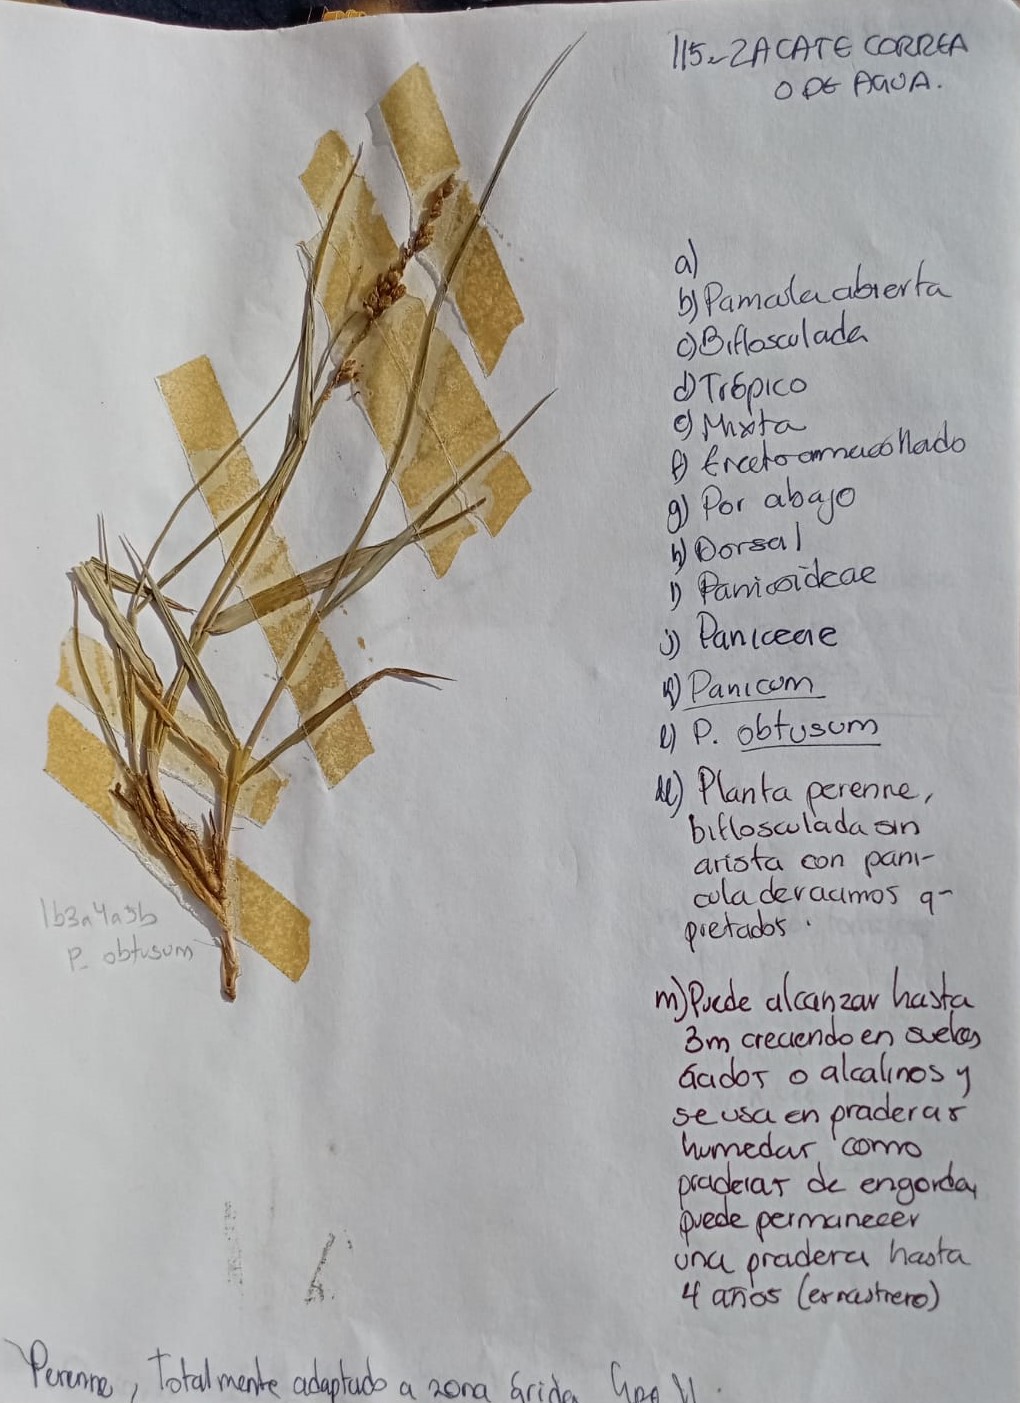 115.- ZACATE CORREA
O DE AGUA.
a)
b) Panicula abierta
c) Biflosculada
d) Trópico
e) Mixta
f) Erecto amacollado
g) Por abajo
h) Dorsal
i) Panicoideae
j) Paniceae
k) Panicum
l) P. obtusum
ll) Planta perenne,
biflosculada sin
arista con pani-
cula de racimos a-
pretados.
1b3a4a3b
P. obtusum
m) Puede alcanzar hasta
3m creciendo en suelos
ácidos o alcalinos y
se usa en praderas
humedas como
praderas de engorda,
puede permanecer
una pradera hasta
4 años (es rastrero)
Perenne, Totalmente adaptado a zona árida